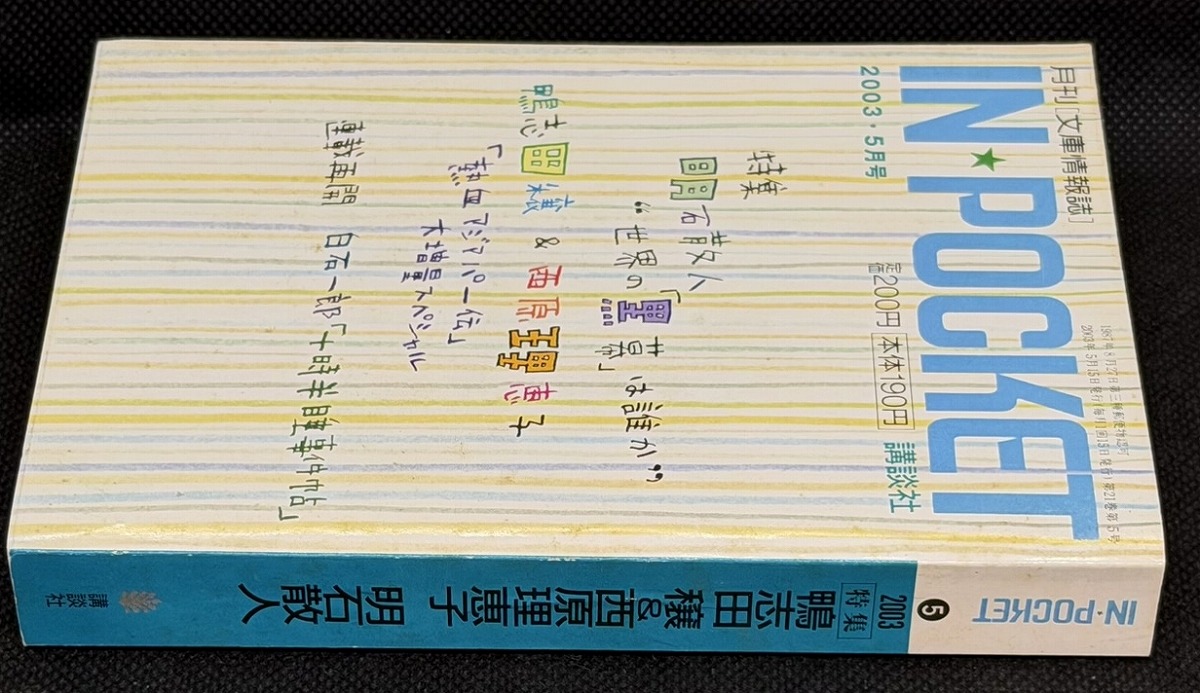 1987年8月27日第三種郵便物認可
2003年5月15日発行(毎月1回15日発行)第21巻第5号
月刊[文庫情報誌]
IN★POCKET
2003・5月号
定価200円 本体190円 講談社
特集
明石散人
“世界の「黒幕」は誰か”
鴨志田穣 & 西原理恵子
「熱血アジアパー伝」
大増量スペシャル
連載再開 白石一郎「十時半睡事件帖」
IN・POCKET
5
2003
特集
鴨志田穣&西原理恵子 明石散人
講談社